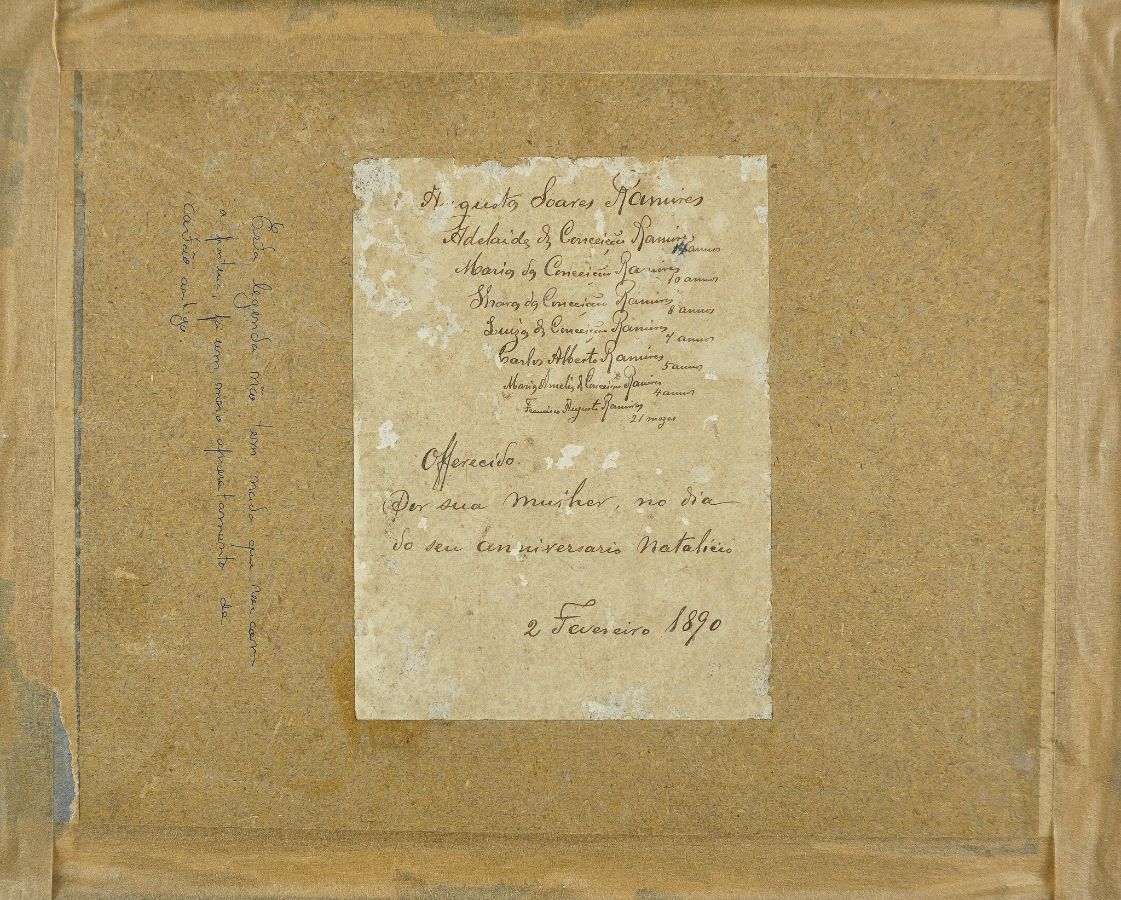 Augusto Soares Ramires
Adelaide da Conceição Ramires
14 annos
Maria da Conceição Ramires
10 annos
da Conceição Ramires
8 annos
Luiza da Conceição Ramires
7 annos
Carlos Alberto Ramires
5 annos
Maria Amelia da Conceição Ramires
4 annos
Francisco Augusto Ramires
21 mezes
Offerecido.
Por sua mulher, no dia
do seu anniversario Natalicio
2 Fevereiro 1890
Esta legenda não tem nada que ver com
a pintura, foi um mero aproveitamento de
cartão antigo.